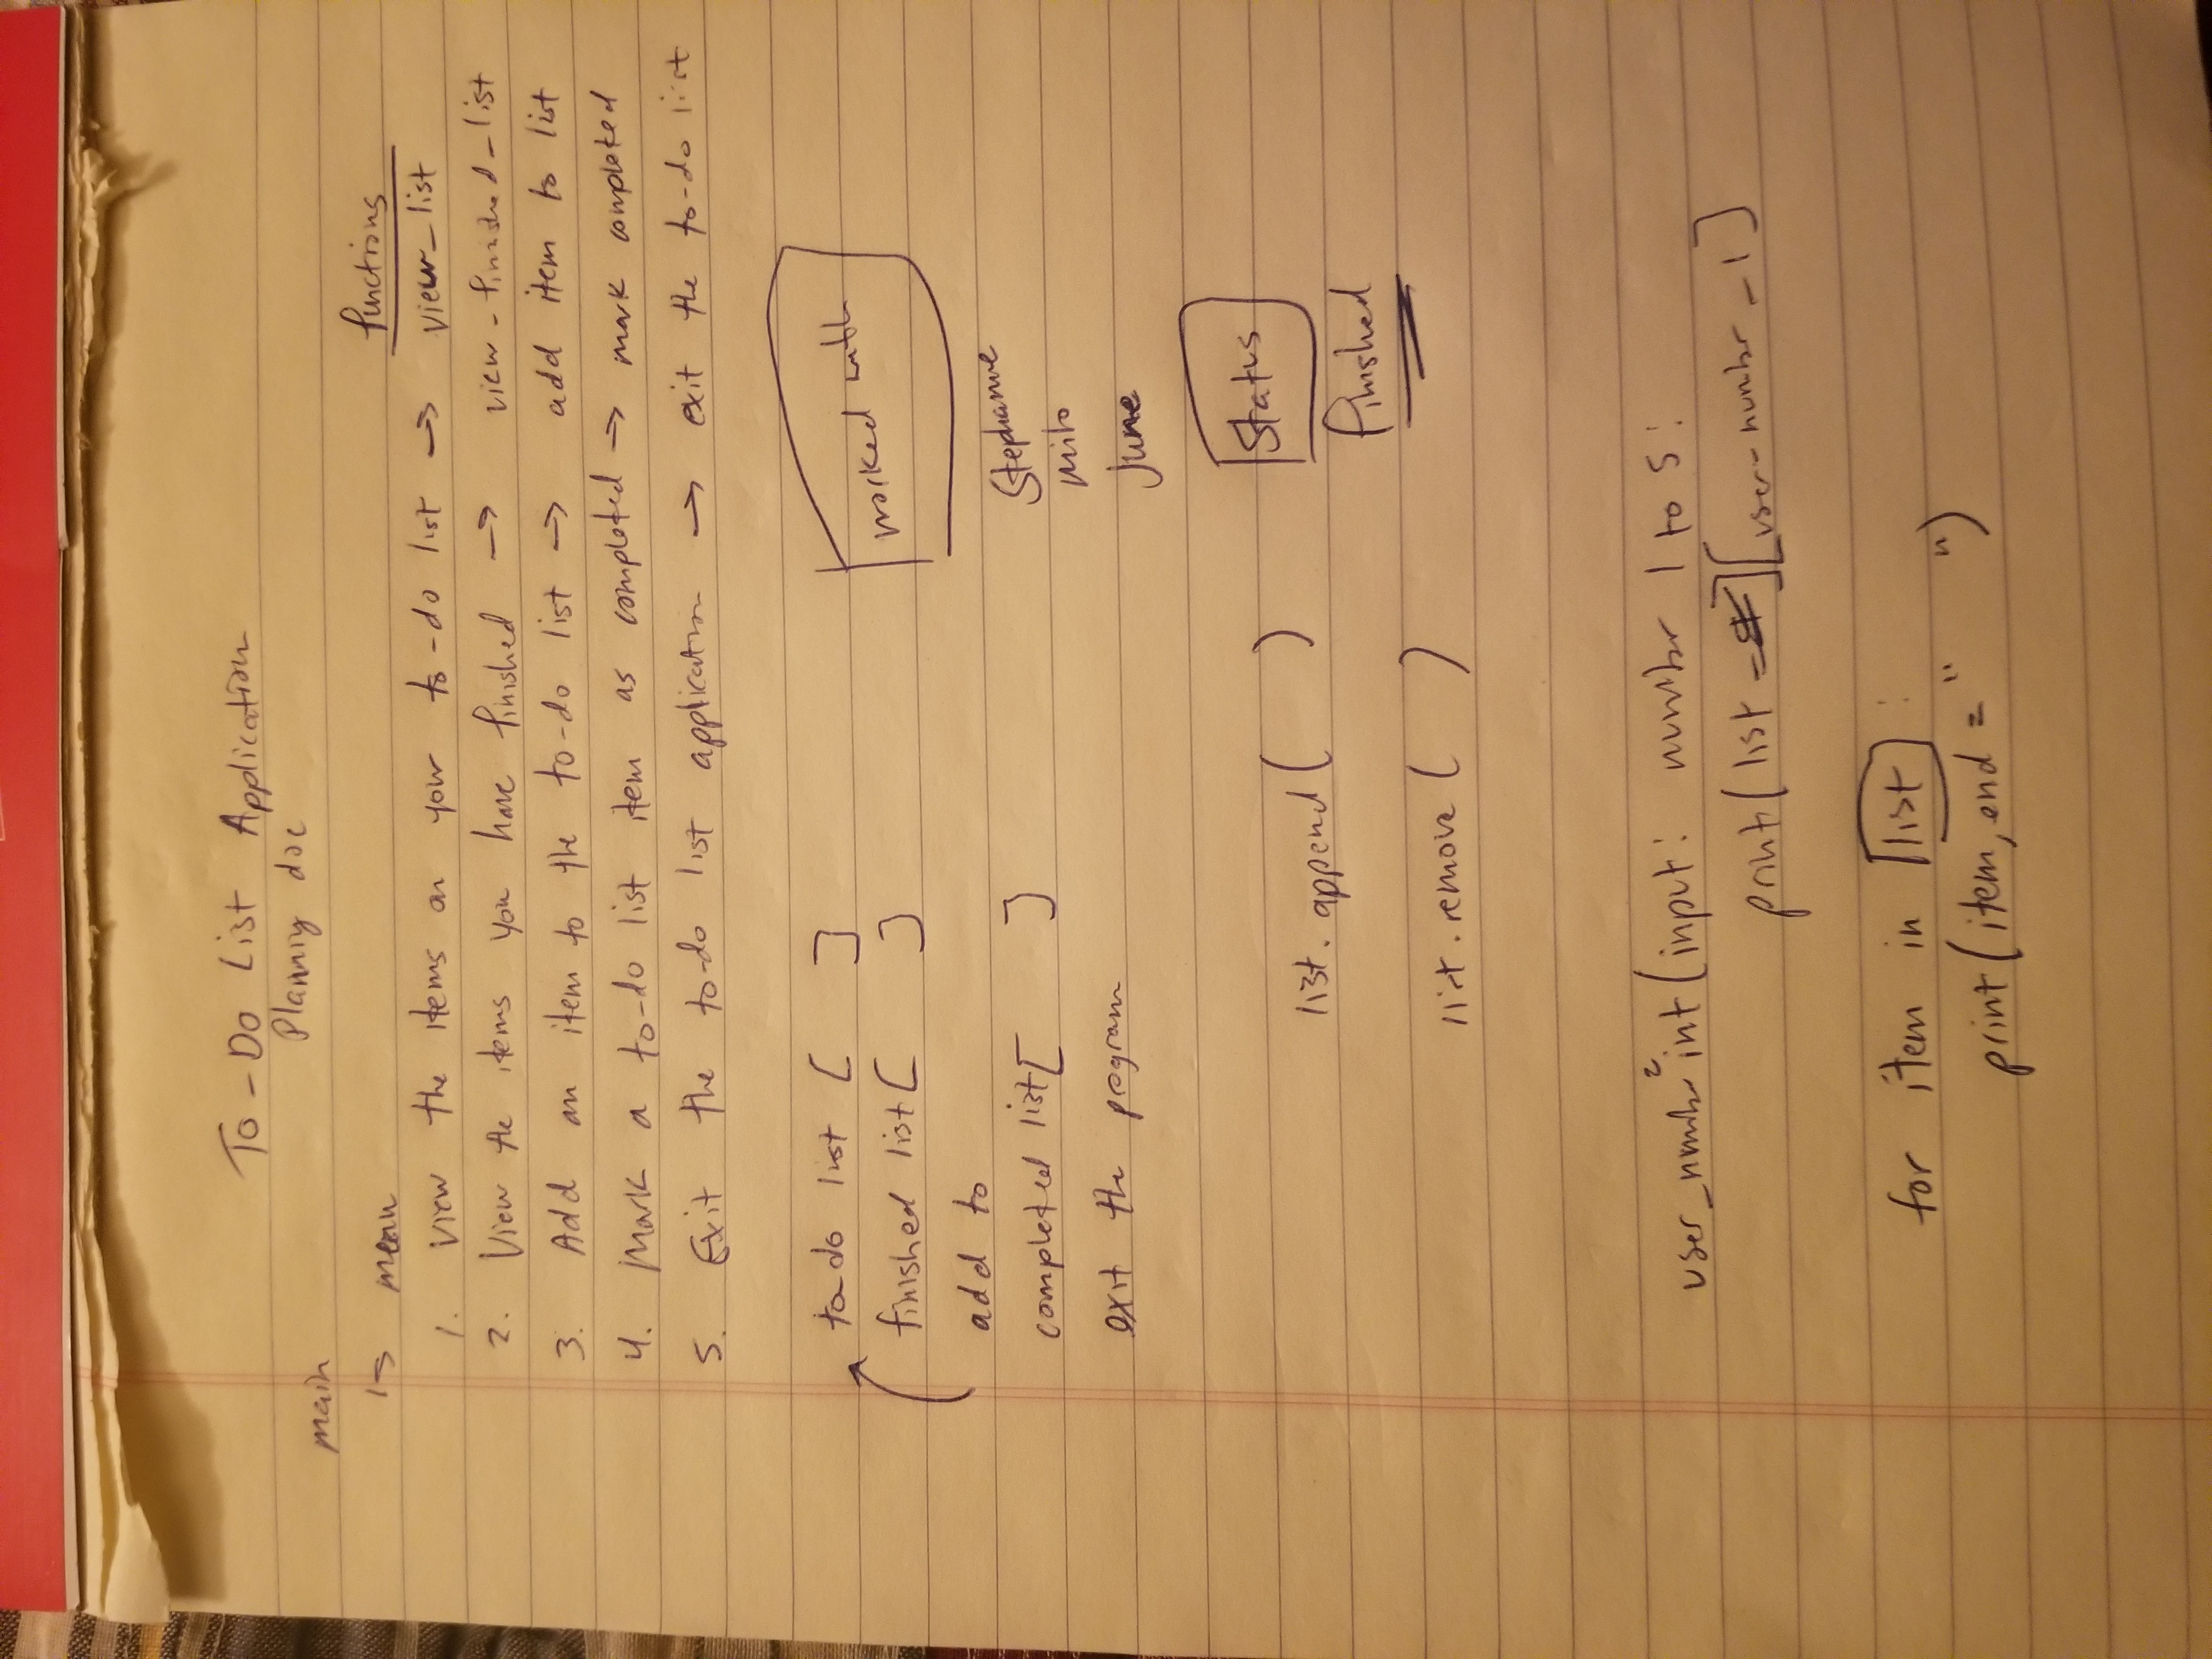 To-Do List Application
Planning doc
main
menu
functions
1. View the items on your to-do list → view_list
2. View the items you have finished → view-finished-list
3. Add an item to the to-do list → add item to list
4. Mark a to-do list item as completed → mark completed
5. Exit the to-do list application → exit the to-do list
to do list [ ]
finished list [ ]
add to
completed list [ ]
exit the program
worked with
Stephanie
Milo
June
Status
finished
list.append( )
list.remove( )
user_number = int(input: number 1 to 5:
print(list ][user-number-1]
for item in list :
print(item, end = " ")